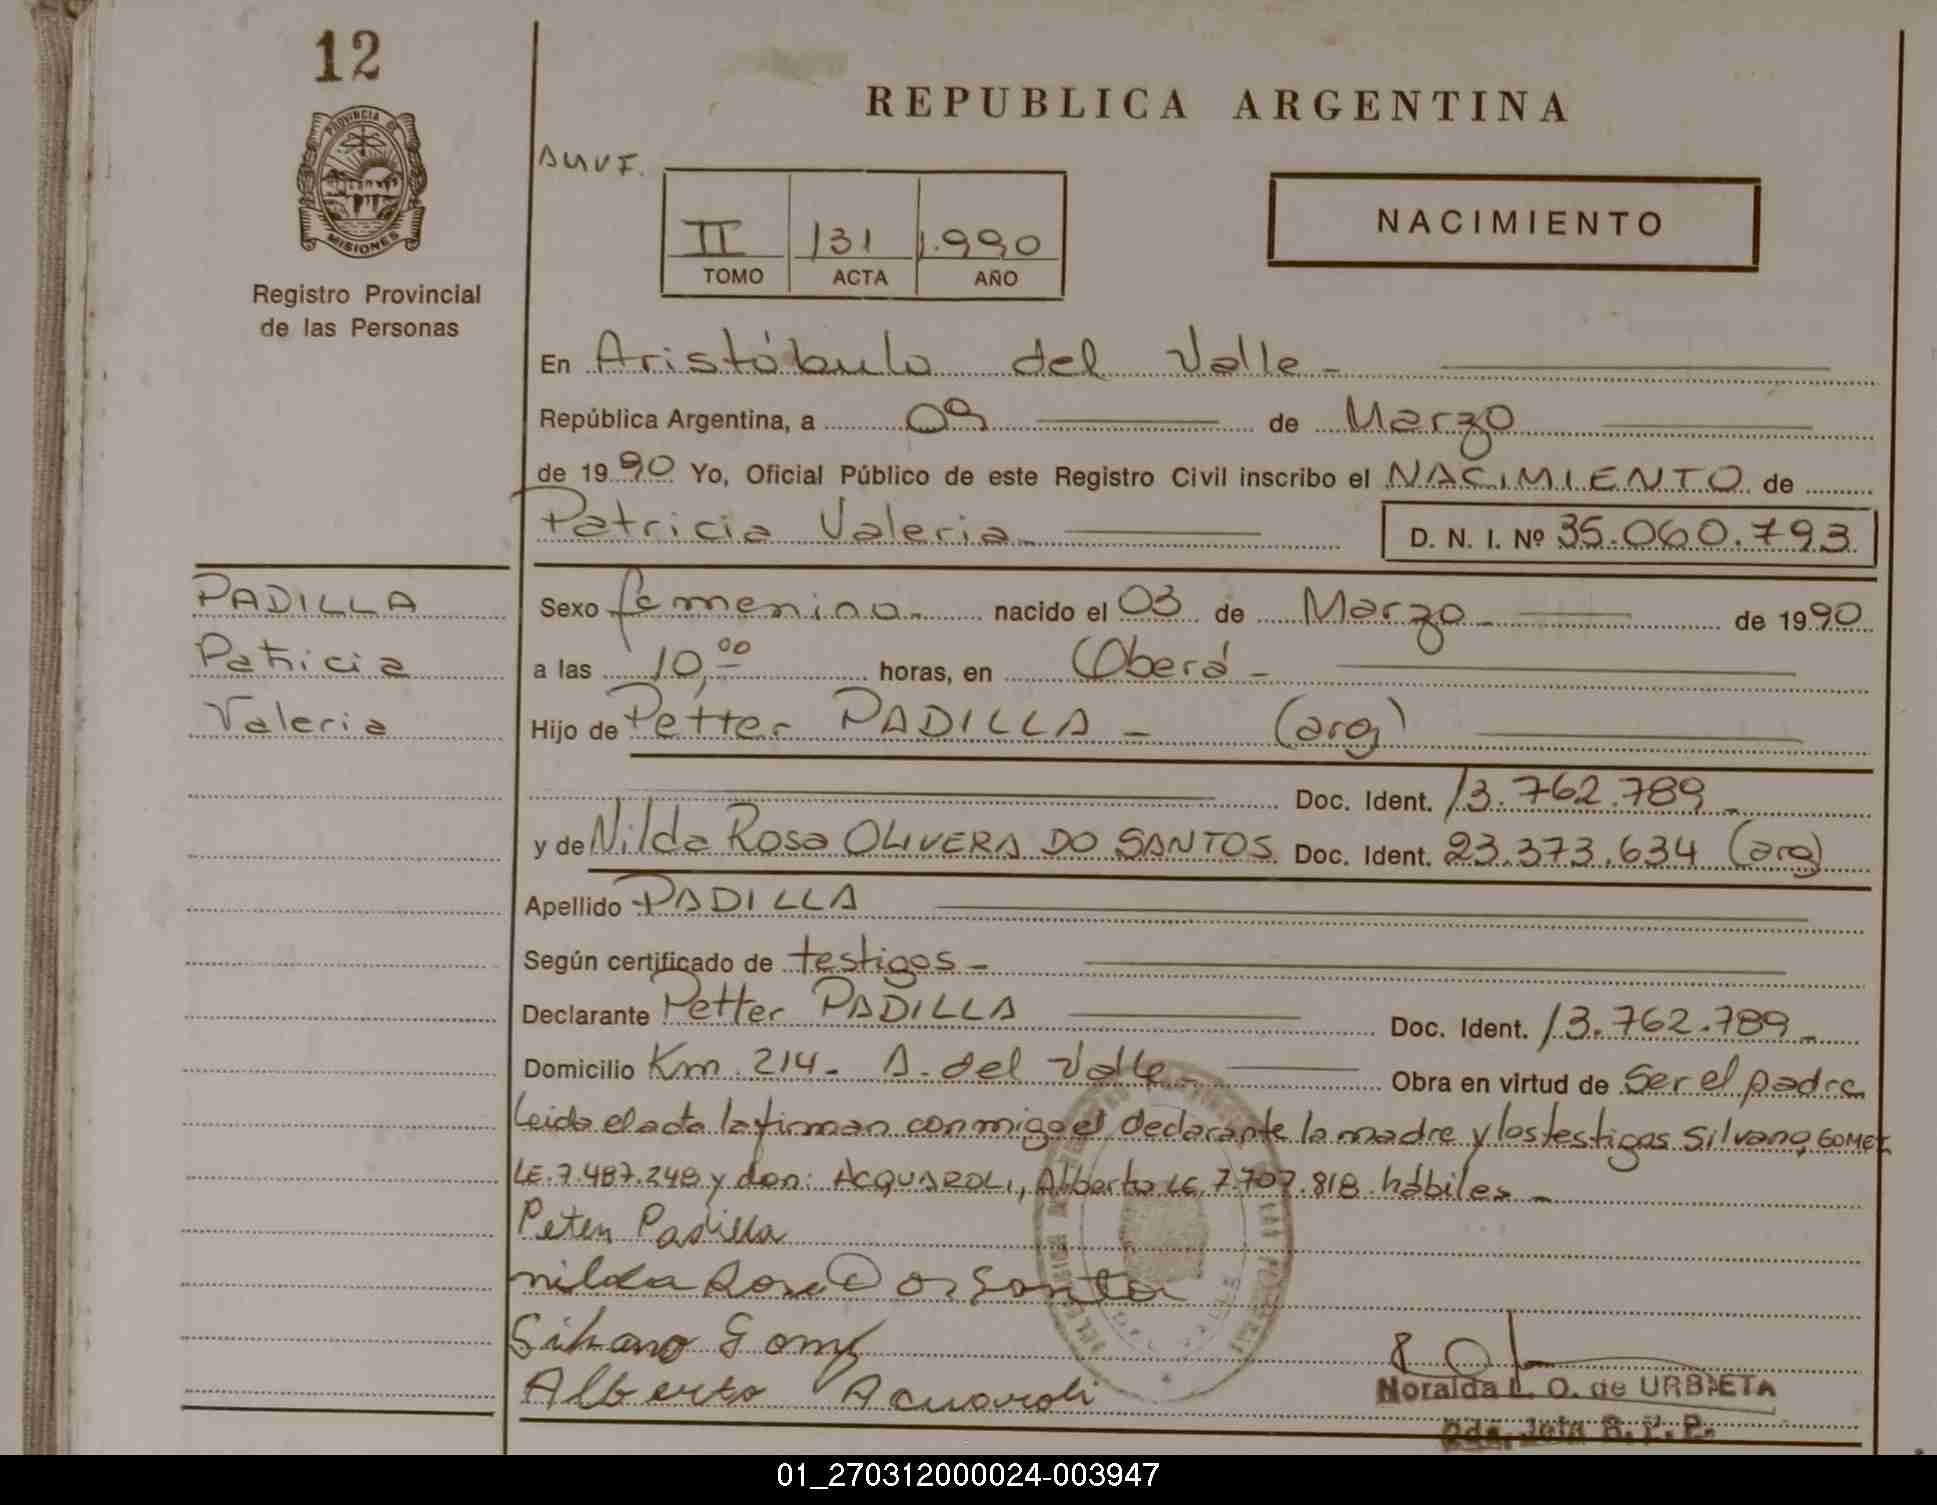 12
REPUBLICA ARGENTINA
PROVINCIA DE
MISIONES
Registro Provincial
de las Personas
II 131 1.990
TOMO ACTA AÑO
NACIMIENTO
En Aristóbulo del Valle -
República Argentina, a 09 de Marzo
de 19 90 Yo, Oficial Público de este Registro Civil inscribo el NACIMIENTO de
Patricia Valeria - D. N. I. Nº 35.060.793
PADILLA
Patricia
Valeria
Sexo femenino - nacido el 03 de Marzo - de 19 90
a las 10,00 horas, en Oberá -
Hijo de Petter PADILLA - (arg)
Doc. Ident. 13.762.789 -
y de Nilda Rosa OLIVERA DO SANTOS Doc. Ident. 23.373.634 (arg)
Apellido PADILLA
Según certificado de testigos -
Declarante Petter PADILLA Doc. Ident. 13.762.789 -
Domicilio Km. 214 - A. del Valle - Obra en virtud de ser el padre
Leida el acta la firman conmigo el declarante la madre y los testigos Silvano GOMEZ
LE. 7.487.248 y don: ACQUAROLI, Alberto LE. 7.707.818 hábiles -
Peter Padilla
nilda Rosa
Silvano Gomez
Alberto Acuaroli
Noralda L. O. de URBIETA
01_270312000024-003947